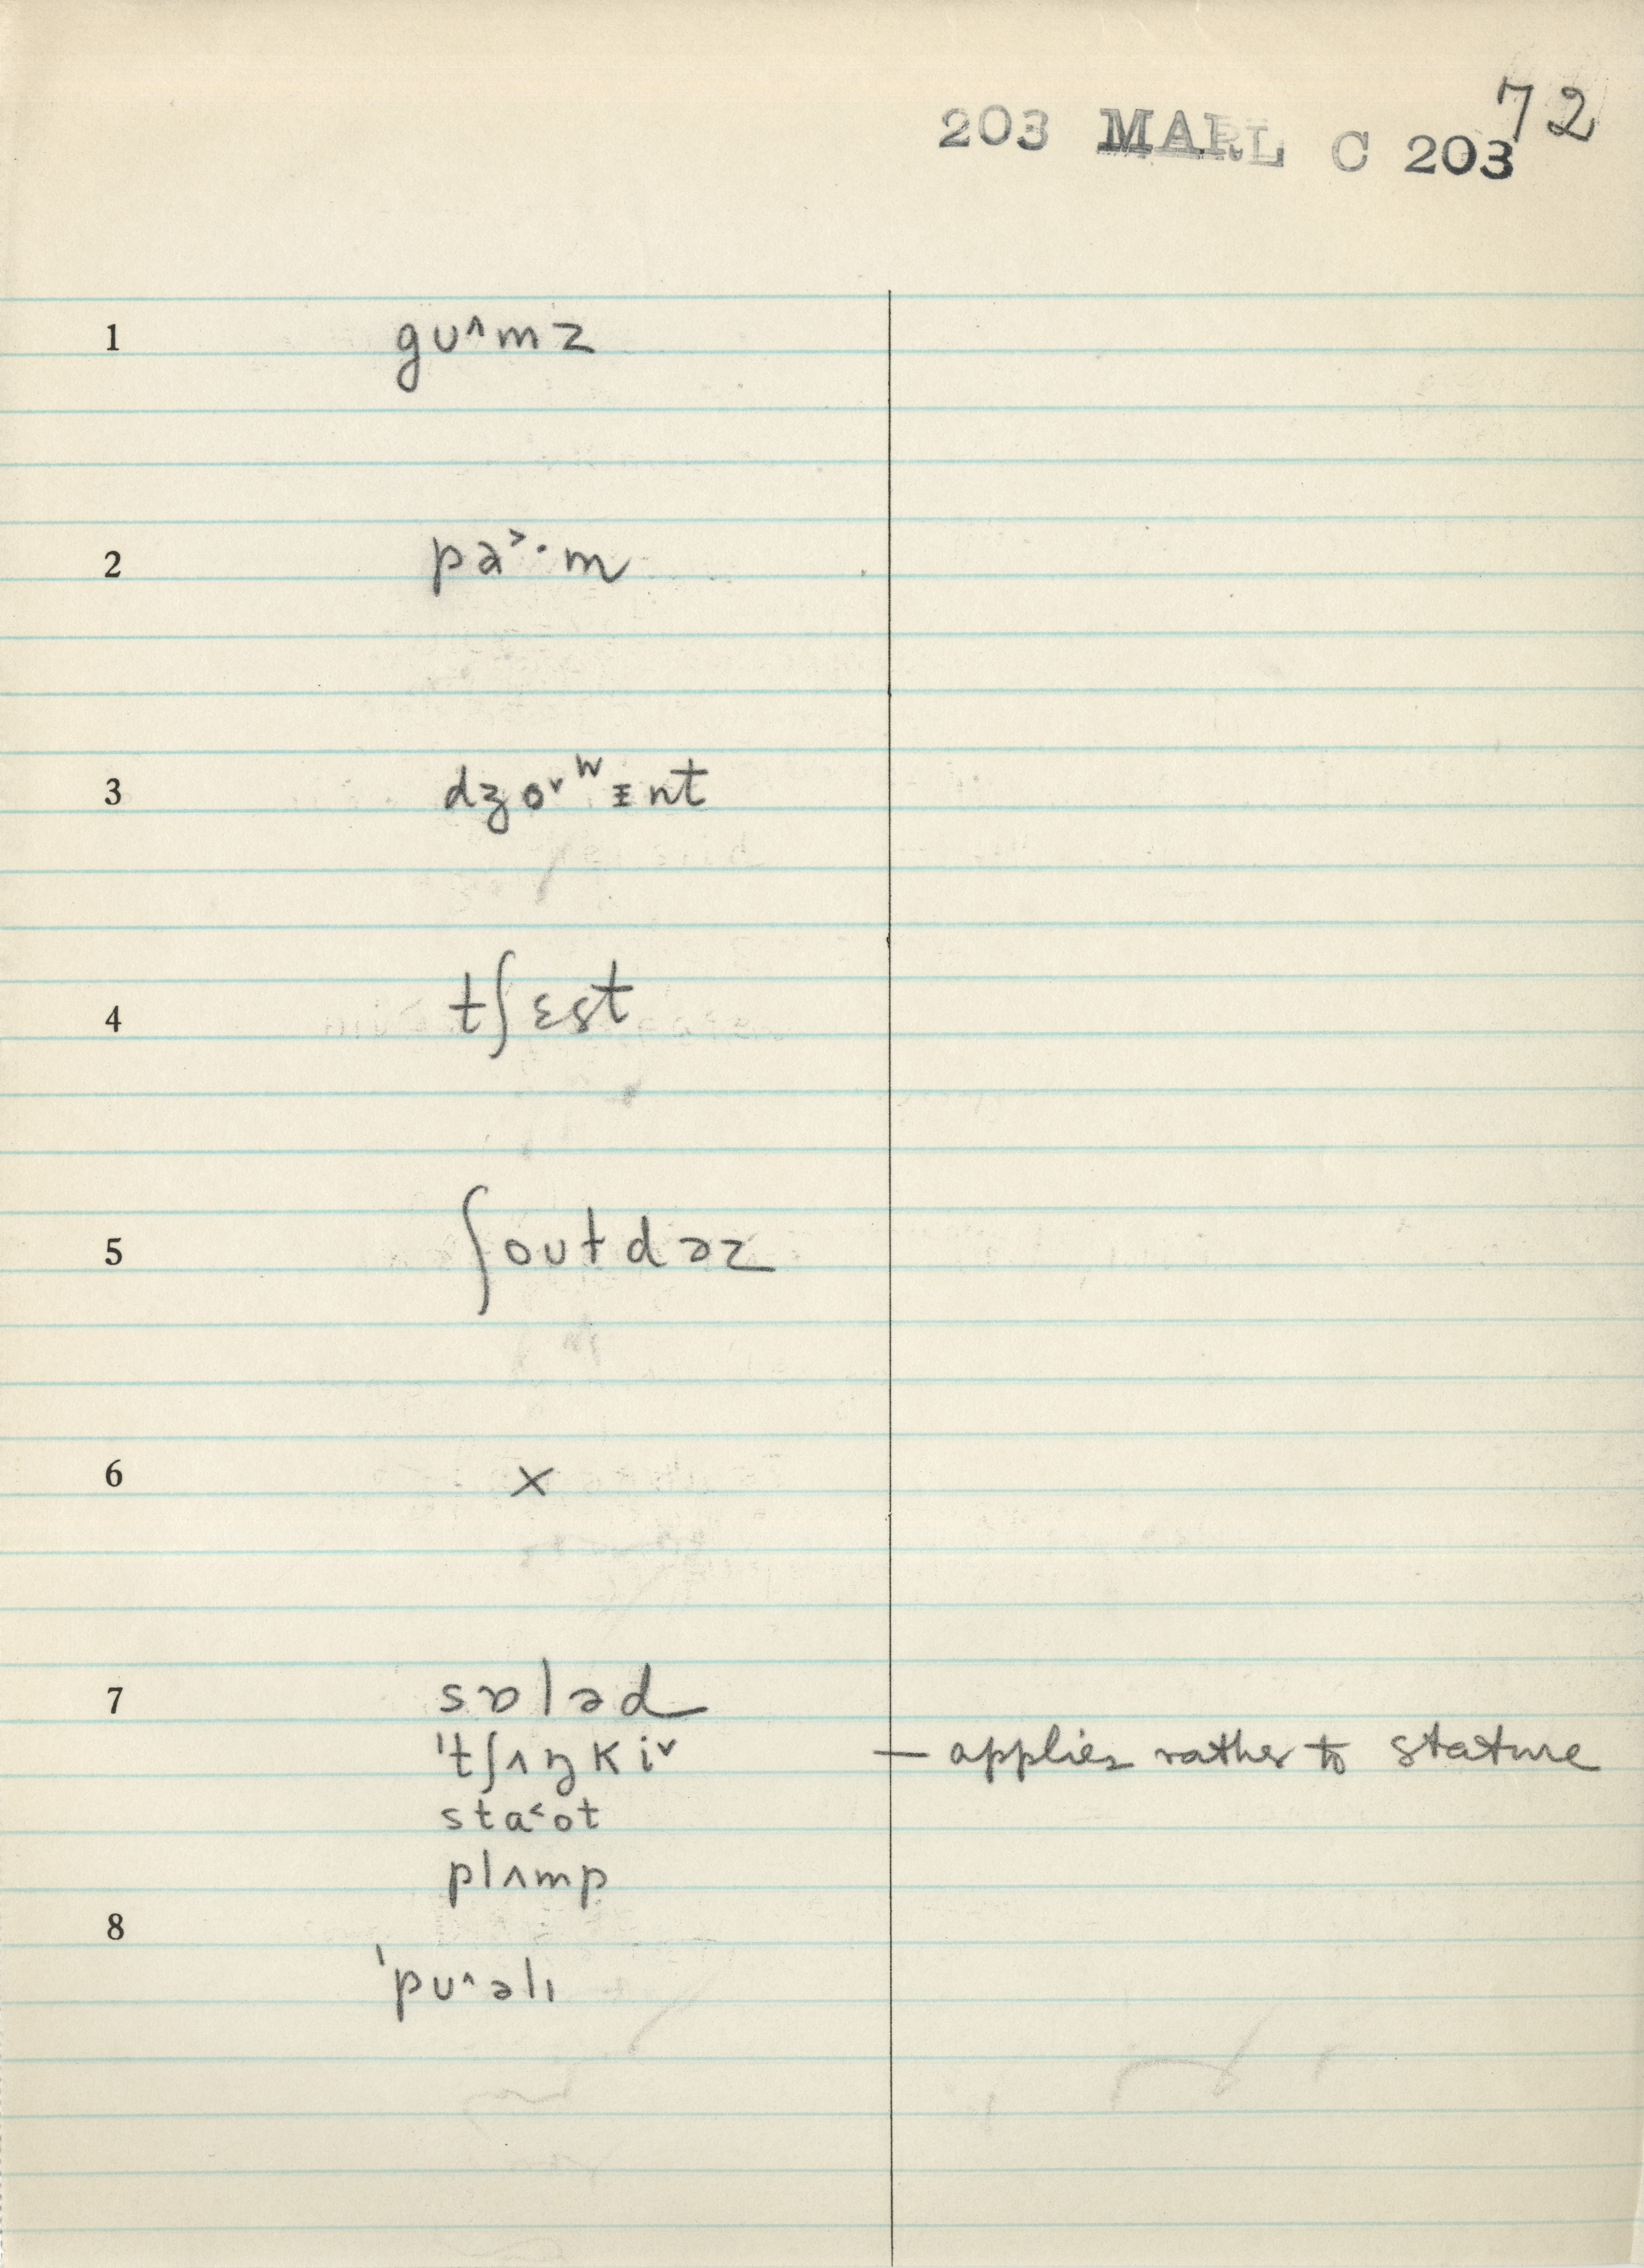 72
203 MARL C 203
1 gu^mz
2 pa˃·m
3 dʒo˅ʷɪnt
4 tʃɛst
5 ʃoutdəz
6 ×
7 sɒləd
'tʃʌŋki˅ — applies rather to stature
sta˂ot
plʌmp
8
'pu^əlı